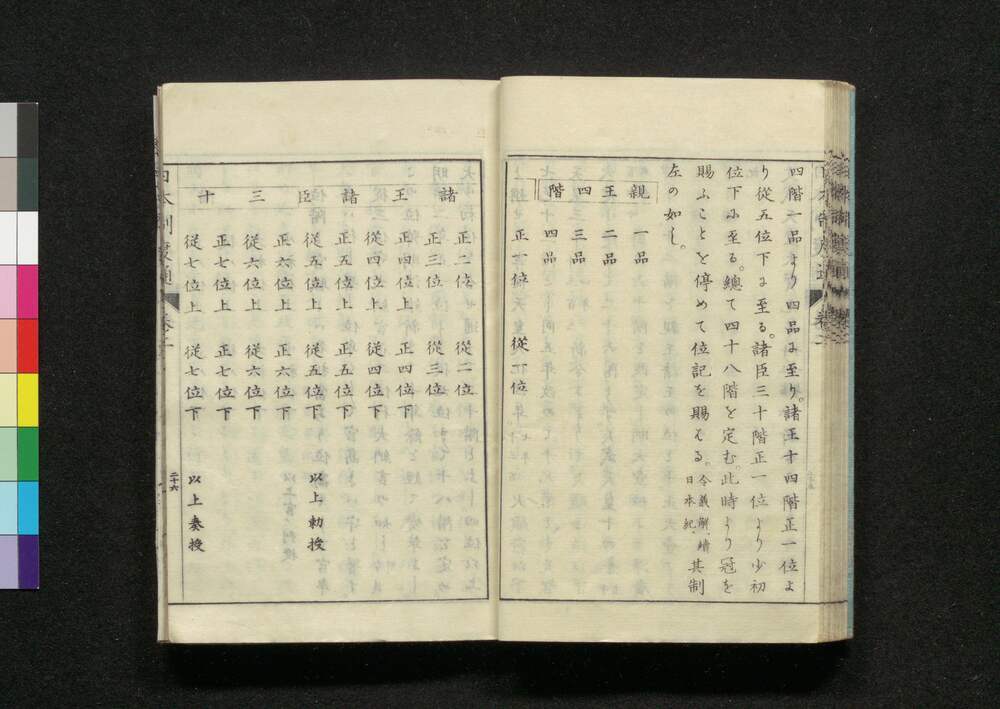 四階一品より四品に至り。諸王十四階正一位よ
り従五位下に至る。諸臣三十階正一位より少初
位下に至る。總て四十八階を定む。此時より冠を
賜ふことを停めて位記を賜はる。令義解、續日本紀、其制
左の如し。
親王四階
一品
二品
三品
四品
正一位
従一位
諸王諸臣三十
正二位 従二位
正三位 従三位
正四位上 正四位下
従四位上 従四位下
正五位上 正五位下
従五位上 従五位下
以上勅授
正六位上 正六位下
従六位上 従六位下
正七位上 正七位下
従七位上 従七位下
以上奏授
二十六